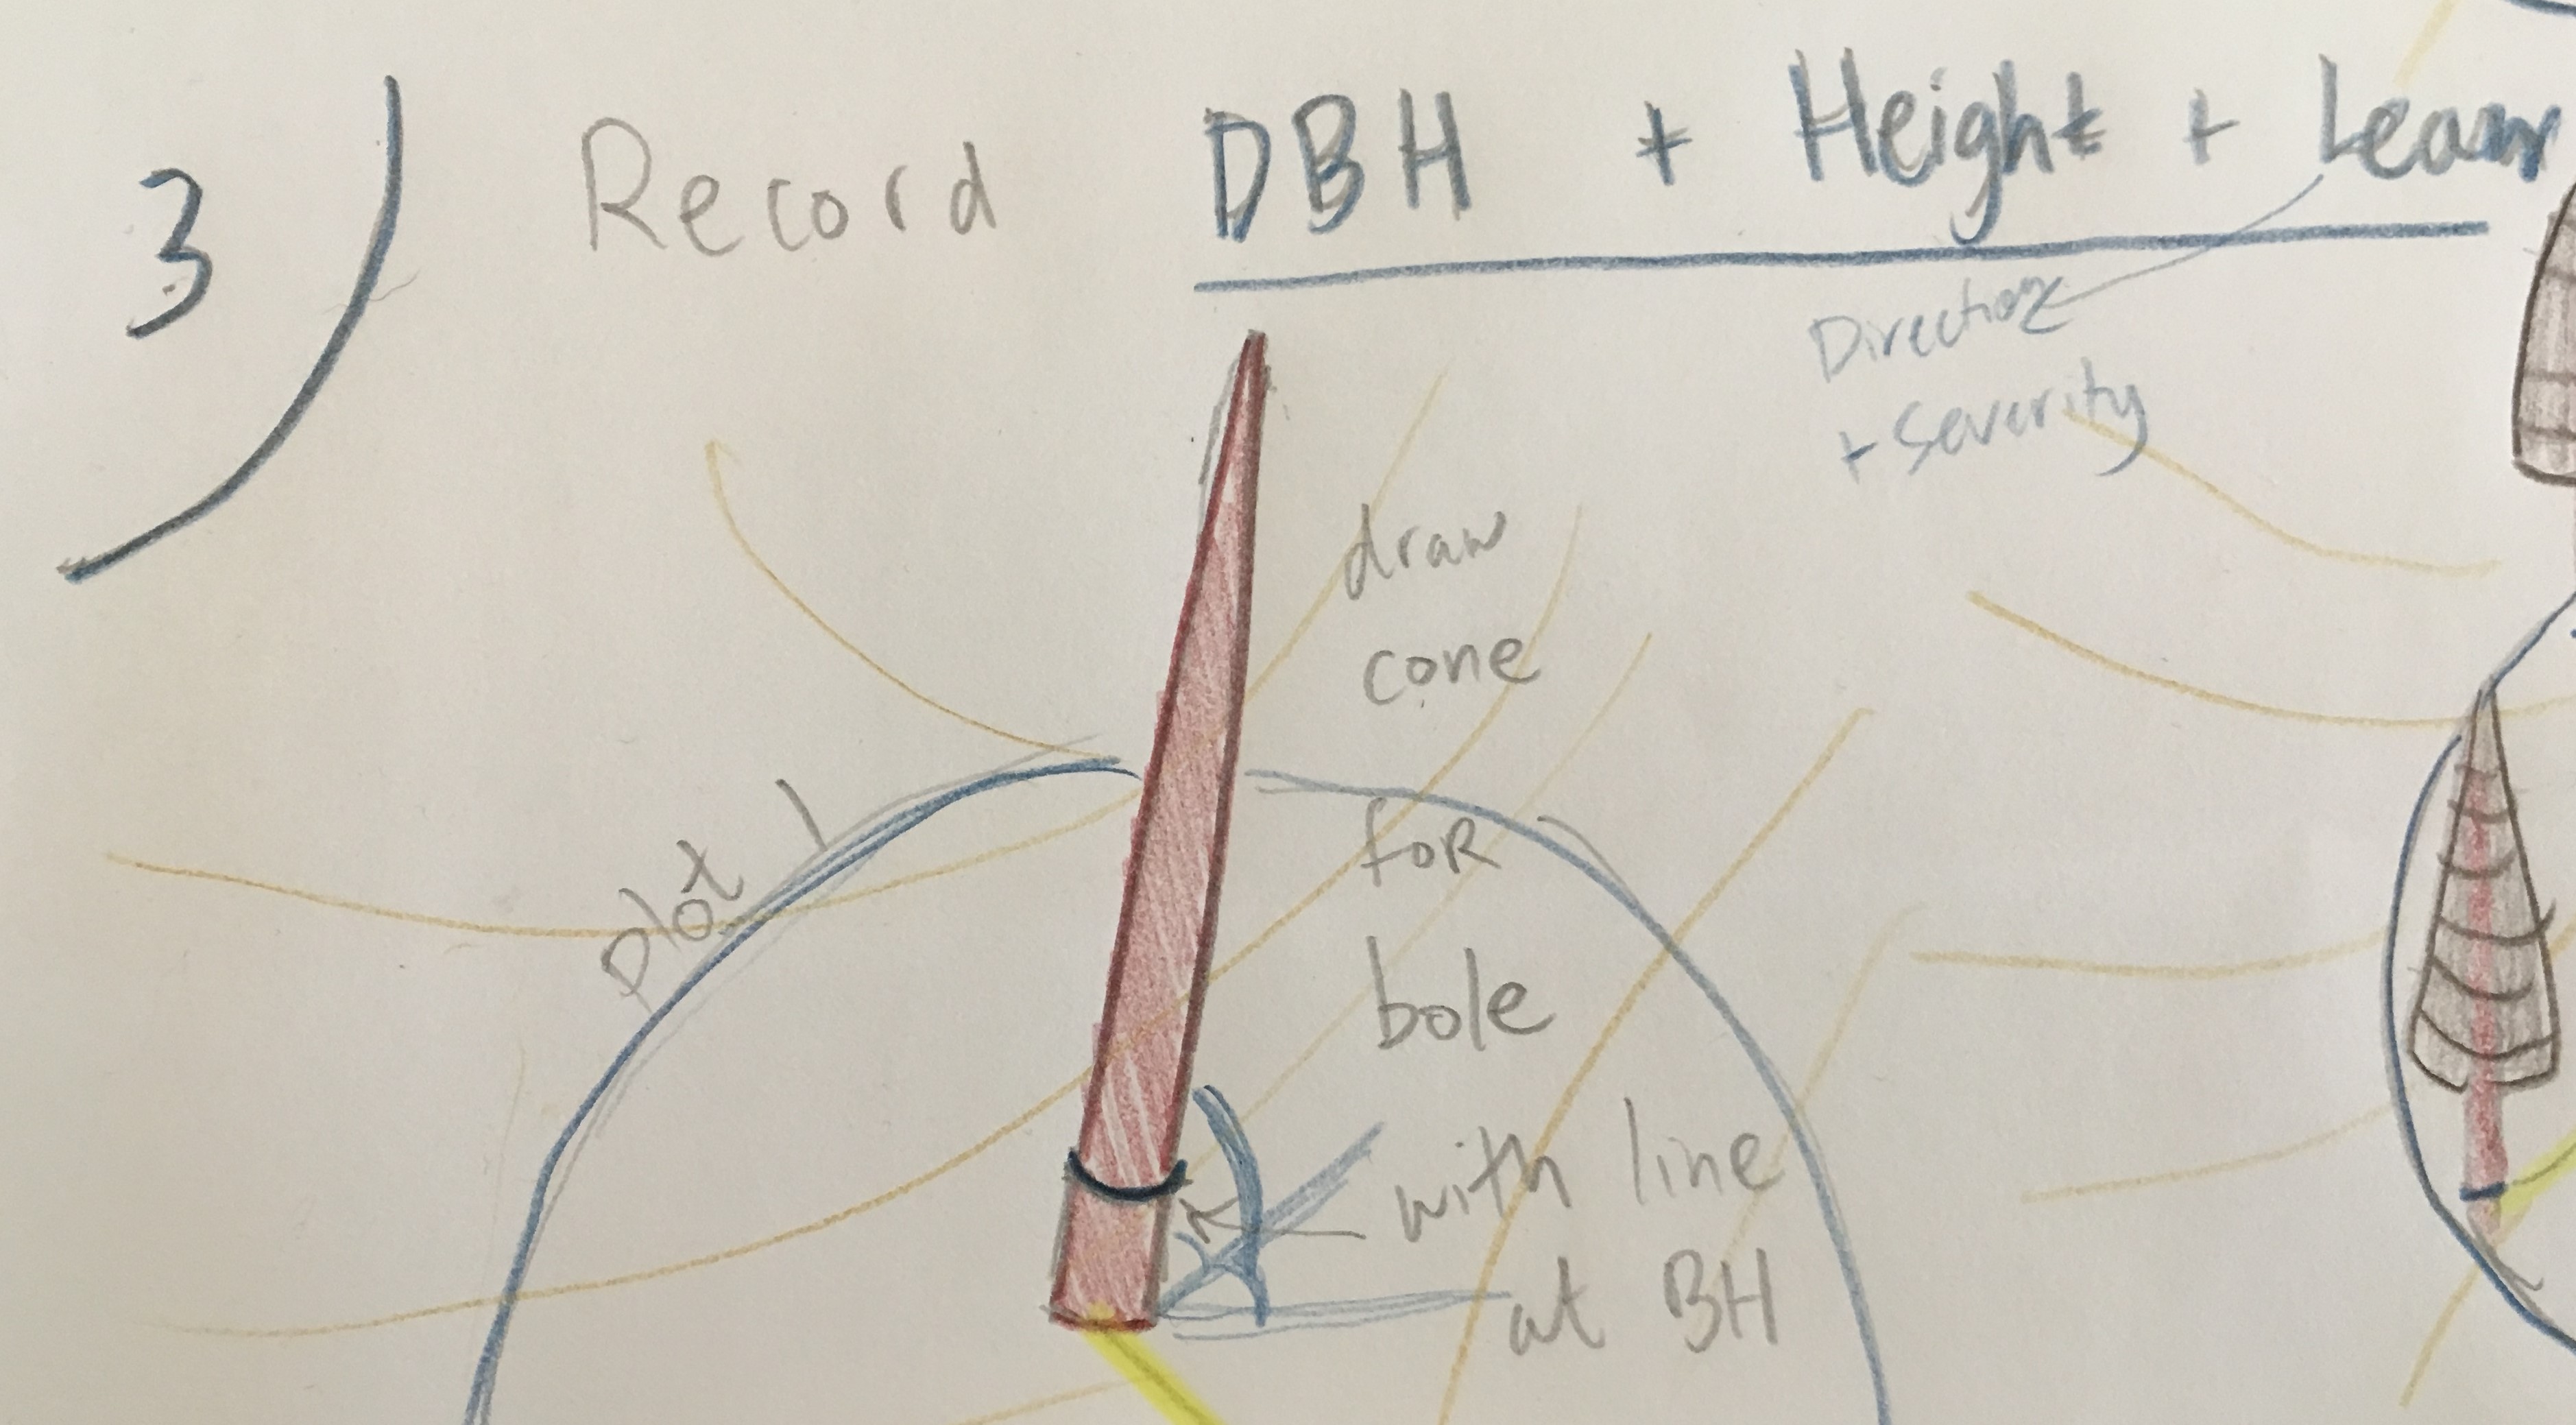 3) Record DBH + Height + Lean
Direction
+ Severity
draw
cone
for
bole
with line
at BH
plot 1